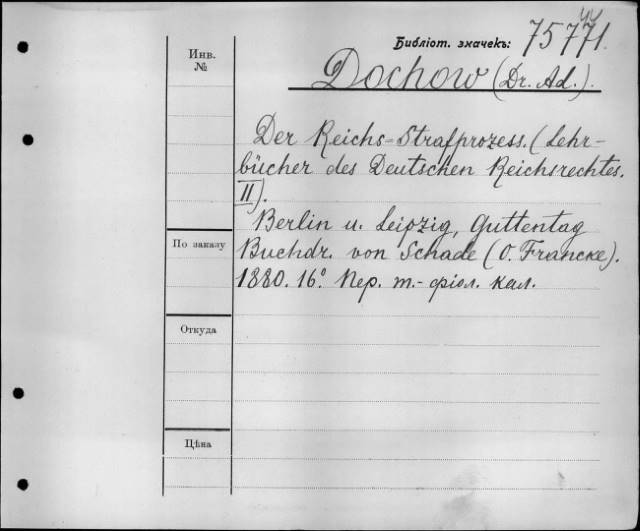 Библіот. значекъ: 75771.
Инв. №
Dochow (Dr. Ad.).
Der Reichs-Strafprozess. (Lehr-
bücher des Deutschen Reichsrechtes.
II).
Berlin u. Leipzig, Guttentag
По заказу
Buchdr. von Schade (O. Francke).
1880. 16º. Пер. т.-фіол. кал.
Откуда
Цѣна